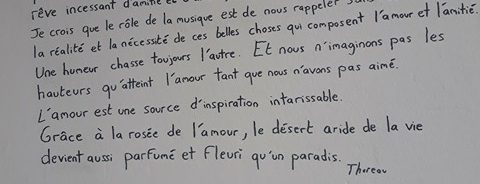 rêve incessant d'amitié
Je crois que le rôle de la musique est de nous rappeler sans
la réalité et la nécessité de ces belles choses qui composent l'amour et l'amitié.
Une humeur chasse toujours l'autre. Et nous n'imaginons pas les
hauteurs qu'atteint l'amour tant que nous n'avons pas aimé.
L'amour est une source d'inspiration intarissable.
Grâce à la rosée de l'amour, le désert aride de la vie
devient aussi parfumé et fleuri qu'un paradis.
Thoreau